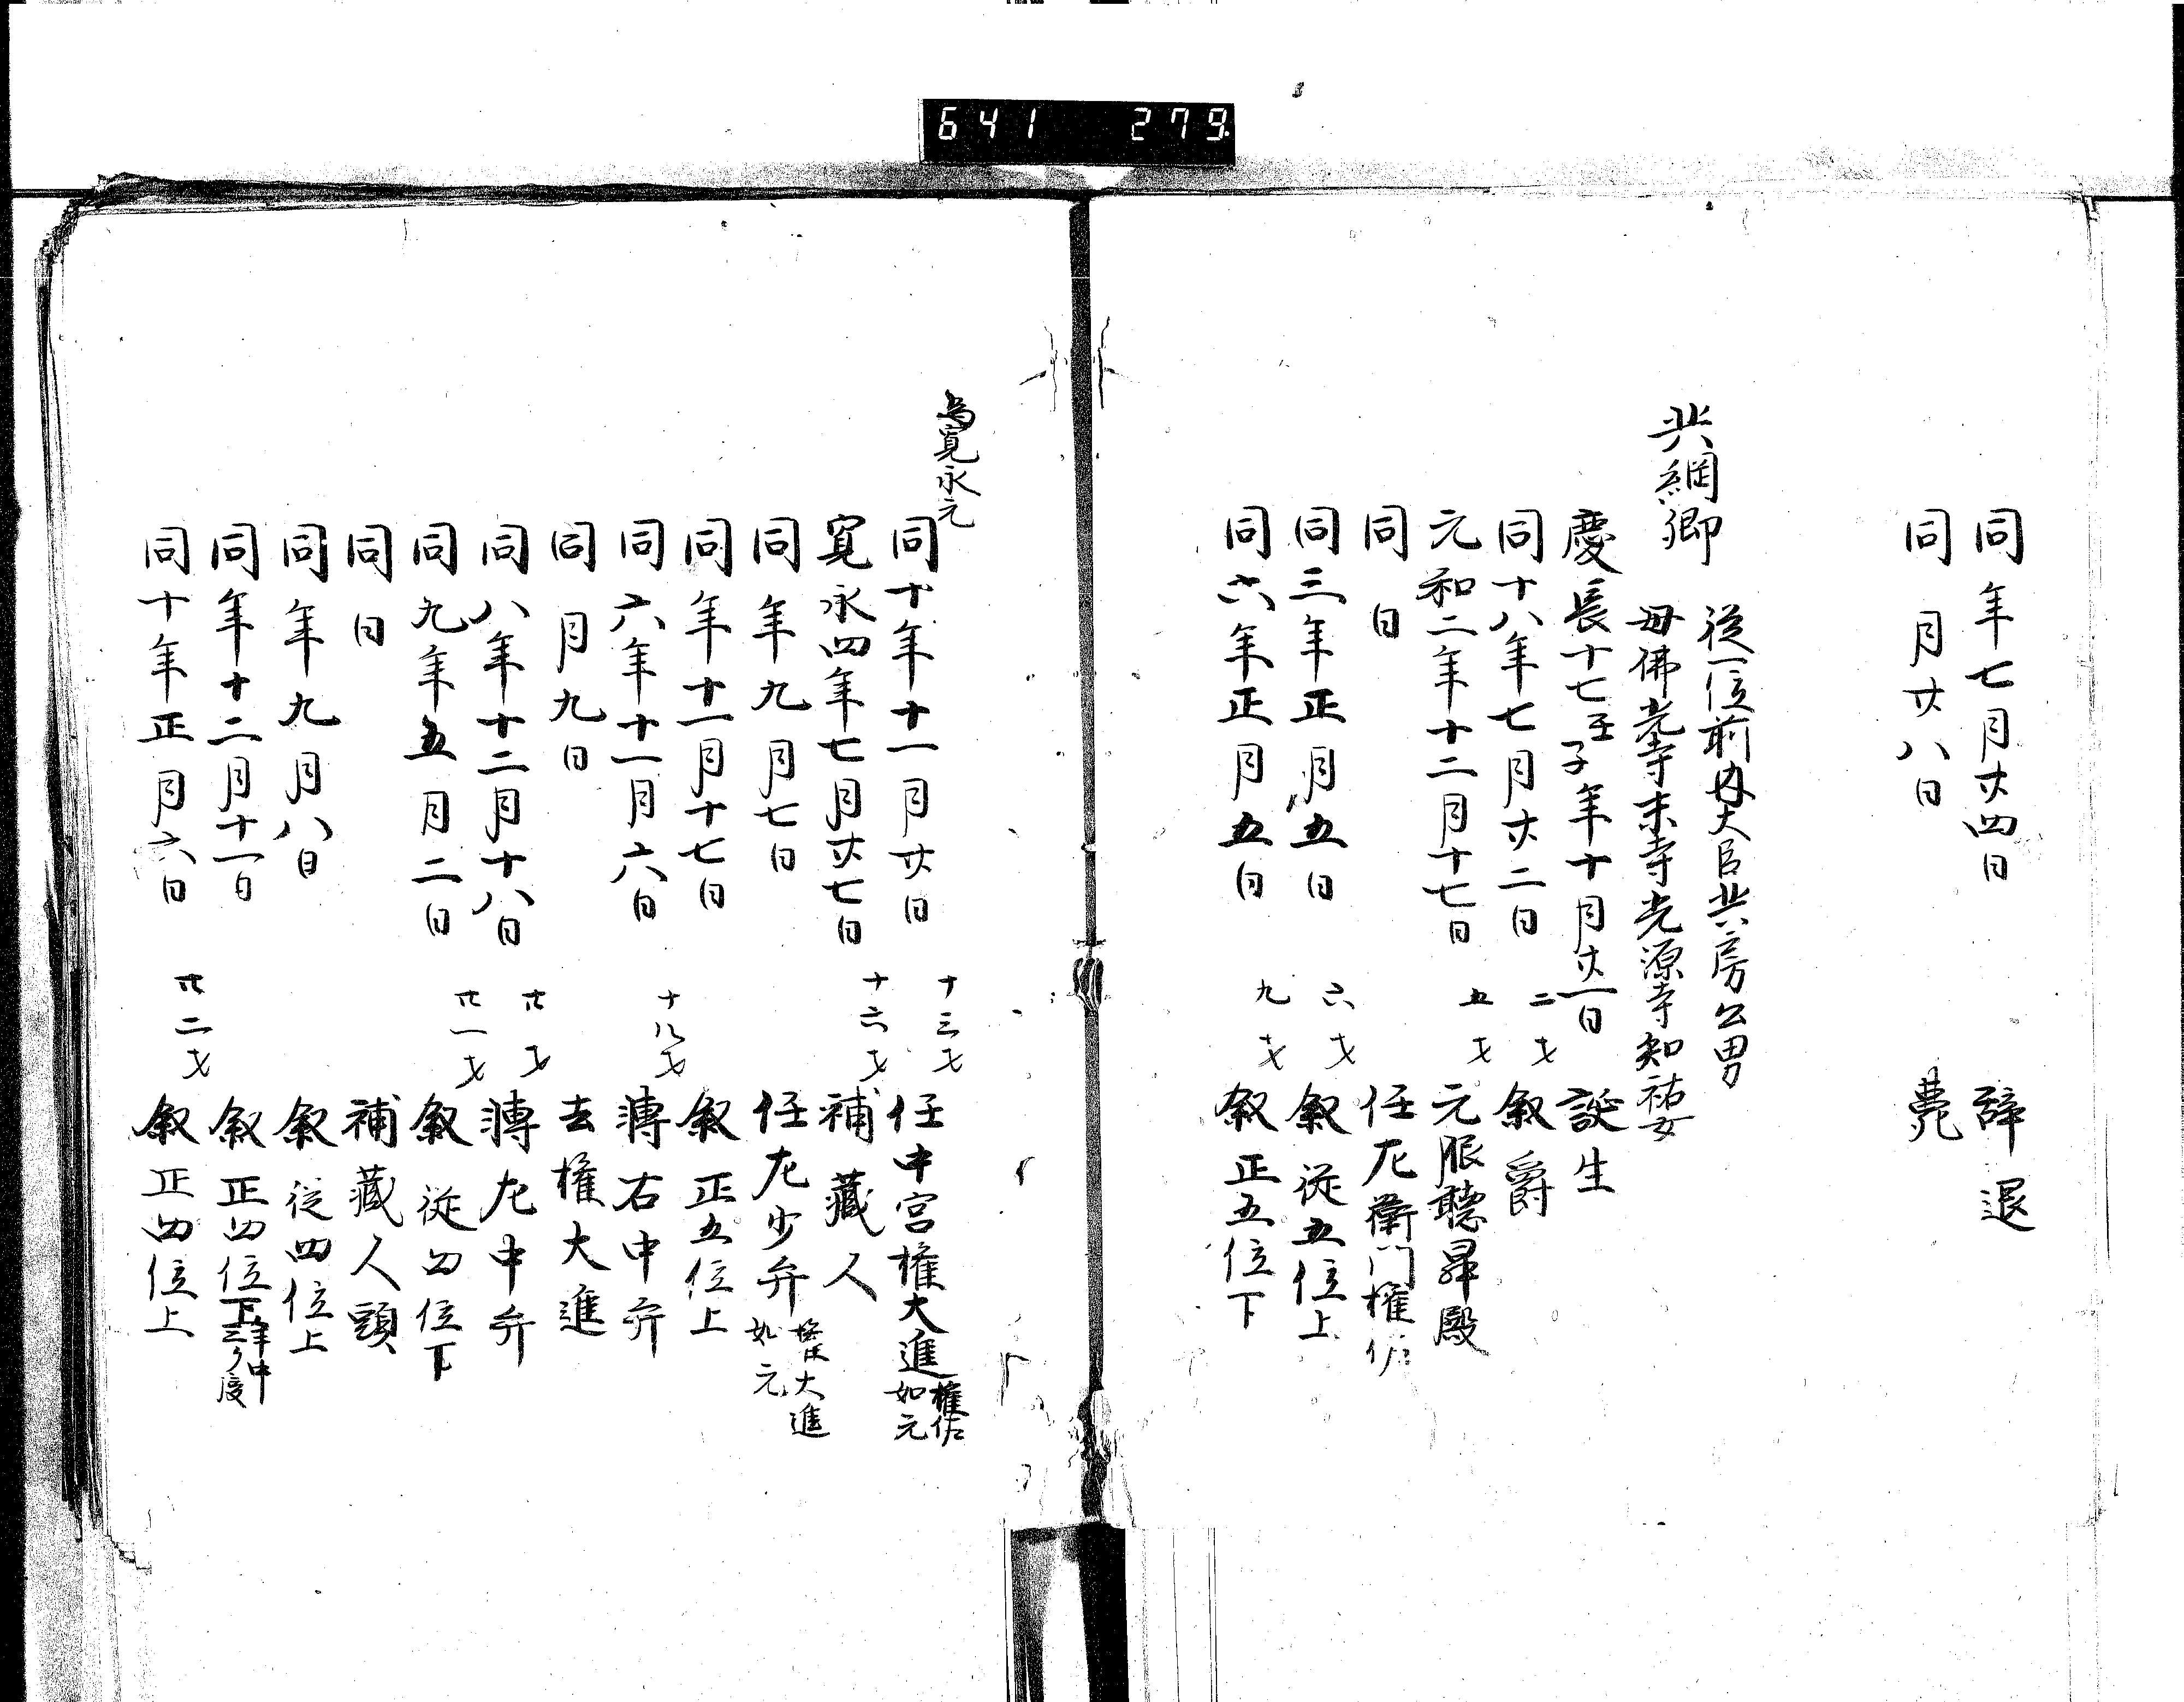 641 279
同年七月廿四日 辞退
同月廿八日 薨
共綱卿
従一位前内大臣共房公男
母佛光寺末寺光源寺知祐女
慶長十七壬子年十月廿一日 誕生
同十八年七月廿二日 二才 叙爵
元和二年十二月十七日 五才 元服聴昇殿
同日 任左衛門権佐
同三年正月五日 六才 叙従五位上
同六年正月五日 九才 叙正五位下
為寛永元
同十年十一月廿日 十三才 任中宮権大進 権佐如元
寛永四年七月廿七日 十六才 補藏人
同年九月七日 任左少弁 権大進如元
同年十一月十七日 叙正五位上
同六年十一月六日 十八才 轉右中弁
同月九日 去権大進
同八年十二月十八日 廿才 轉左中弁
同九年五月二日 廿一才 叙従四位下
同日 補藏人頭
同年九月八日 叙従四位上
同年十二月十一日 叙正四位下 年中三ケ度
同十年正月六日 廿二才 叙正四位上